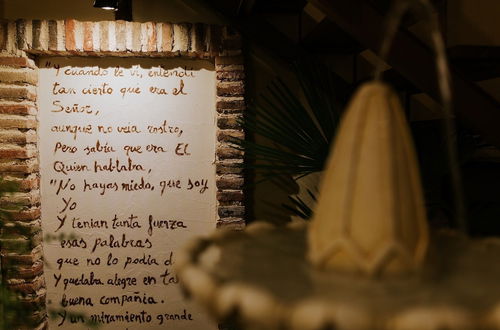 "Y cuando le vi, entendí
tan cierto que era el
Señor,
aunque no veía rostro,
pero sabía que era El
Quien hablaba,
"No hayas miedo, que soy
Yo
Y tenían tanta fuerza
esas palabras
que no lo podía d
Y quedaba alegre en ta
buena compañía.
Y un miramiento grande